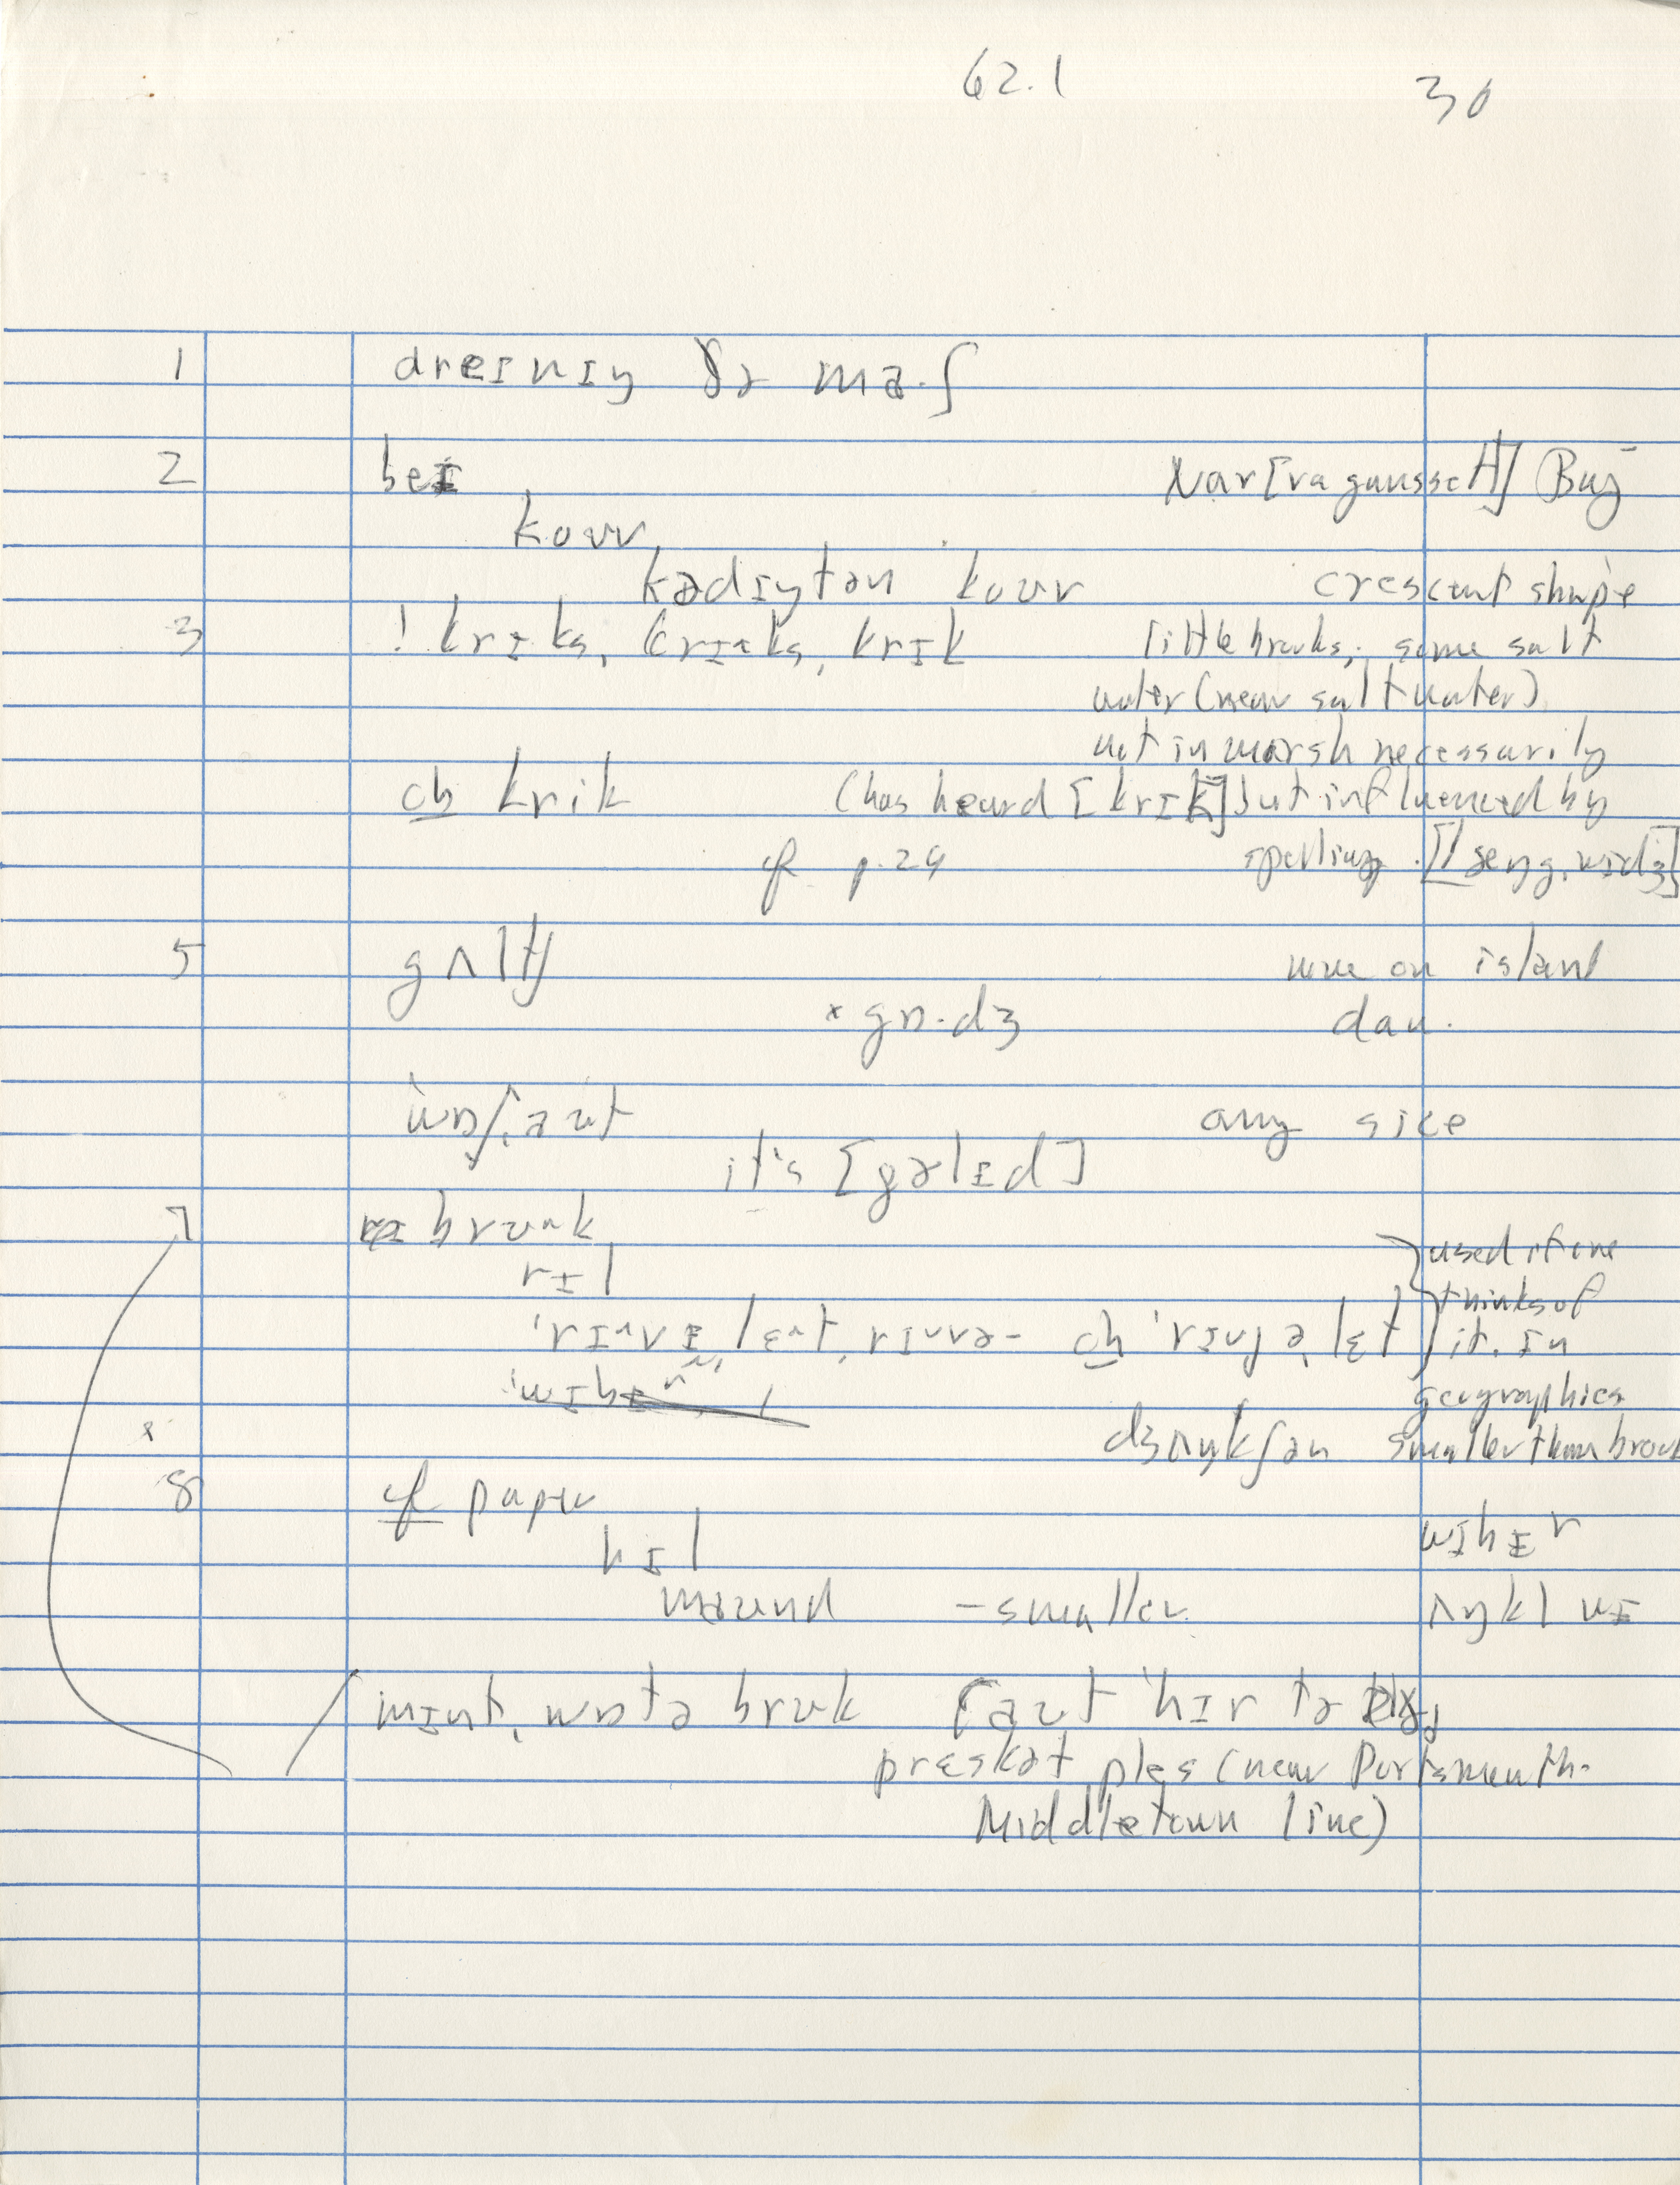 62.1 30
1 dreɪnɪŋ ðə ma.ʃ
2 beɪ Nar[ragansett] Bay
kouv,
kadɪŋtən kouv crescent shape
3 ! krɪks, krɪˆks, krik little brooks, some salt
water (near salt water)
not in marsh necessarily
ch krik (has heard [krɪk] but influenced by
cf p.29 spelling.
5 gʌltʃ none on island
× gɒ.dʒ dau.
'wɒʃ,aut any size
it's [gəlɪd]
7 brʊˆk
rɪl
ch 'rɪvjə,lɛt } used if one
thinks of
it in
geographies
× dʒʌŋkʃən smaller than brook
8 cf paper
hɪl
mound – smaller
ʌŋkl
mɪnt, wɒtə brʊk [aut hɪr tə
prɛskət ples (near Portsmouth-
Middletown line)